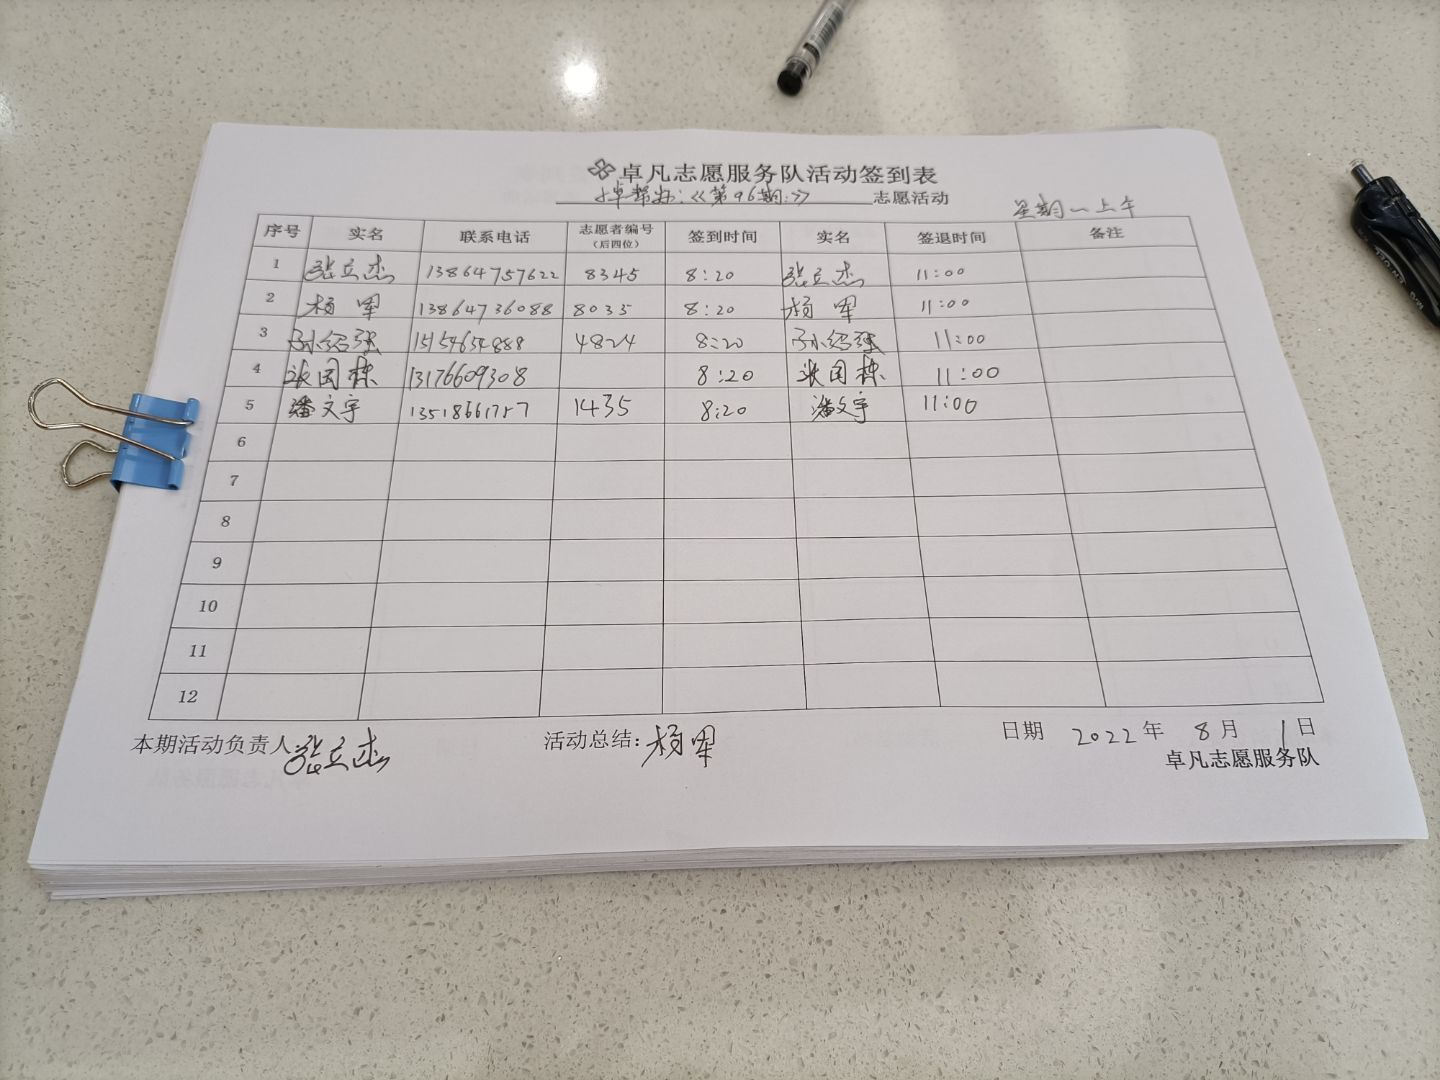 卓凡志愿服务队活动签到表
《第96期》 志愿活动 星期一上午
序号 实名 联系电话 志愿者编号(后四位) 签到时间 实名 签退时间 备注
1 张立杰 13864757622 8345 8:20 张立杰 11:00
2 杨军 13864736088 8035 8:20 杨军 11:00
3 孙绍强 15154654888 4824 8:20 孙绍强 11:00
4 张国栋 13176609308 8:20 张国栋 11:00
5 潘文宇 1435 8:20 潘文宇 11:00
6
7
8
9
10
11
12
本期活动负责人:张立杰 活动总结:杨军 日期 2022年 8月 1日
卓凡志愿服务队